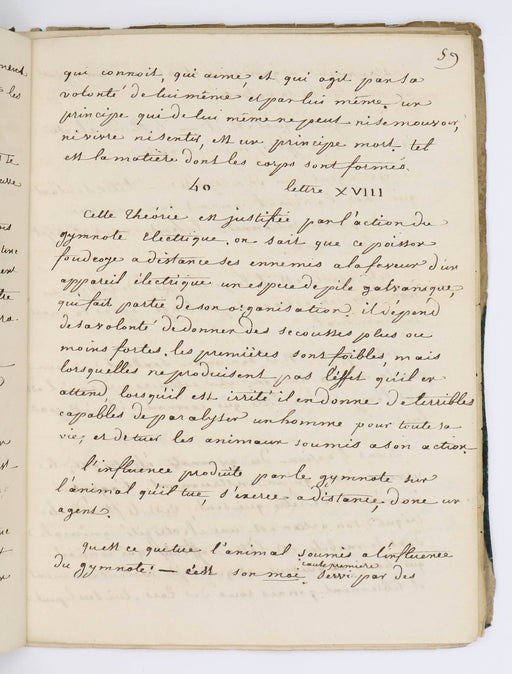 59
qui connoit, qui aime, et qui agit par sa
volonté de lui même et par lui même. un
principe qui de lui même ne peut ni se mouvoir,
ni vivre ni sentir, est un principe mort. tel
est la matière dont les corps sont formés.
40 lettre XVIII
Cette théorie est justifiée par l'action du
gymnote électrique, on sait que ce poisson
foudroye a distance ses ennemis a la faveur d'un
appareil électrique un espece de pile galvanique,
qui fait partie de son organisation. il dépend
de sa volonté de donner des secousses plus ou
moins fortes. les premières sont foibles, mais
lorsquelles ne produisent pas l'effet qu'il en
attend, lorsqu'il est irrité il en donne de terribles
capables de paralyser un homme pour toute sa
vie, et de tuer les animaux soumis a son action.
l'influence produite par le gymnote sur
l'animal qu'il tue, s'exerce a distance, donc un
agent.
quest ce qui tue l'animal soumis a l'influence
du gymnote! — c'est son moi cause première servi par des